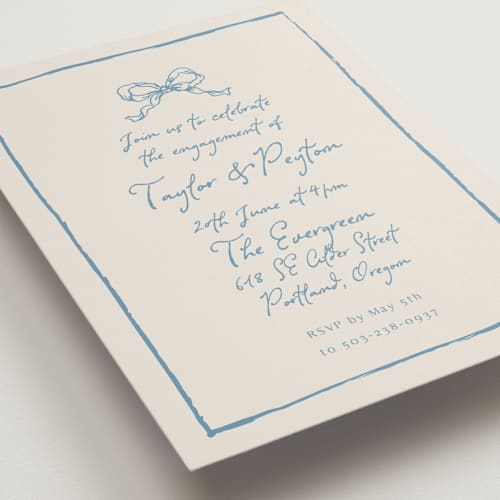 Join us to celebrate
the engagement of
Taylor & Peyton
20th June at 4pm
The Evergreen
618 SE Alder Street
Portland, Oregon
RSVP by May 5th
to 503-238-0937